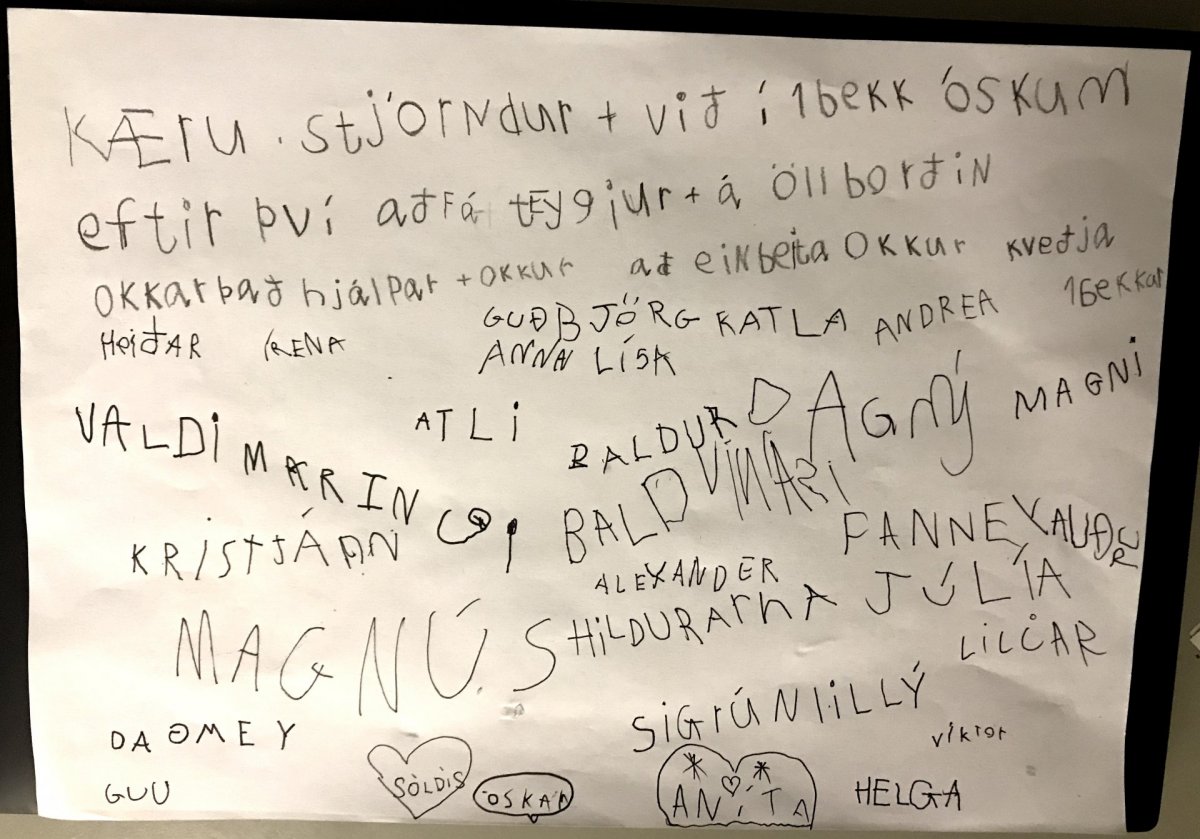 KÆru . stjórndur + við í 1bekk óskum
eftir því að Fá tEygjur + á öll borðin
okkar það hjálpar + okkur að einbeita okkur kveðja
1bekkar
HeiðAR ÍRENA GUÐBJÖRG KATLA ANDREA
ANNA LÍSA
VALDIMAR ATLi BALDUR DAGNÝ MAGNi
BALDVINARi
KRISTJÁAN FANNEYAUÐUR
ALEXANDER
MAGNÚS HiLDURArnA JÚLÍA
SiGrúNliLLÝ
DAGMEY viktor
GUU SÓLDÍS ÓSKAR ANÍTA HELGA